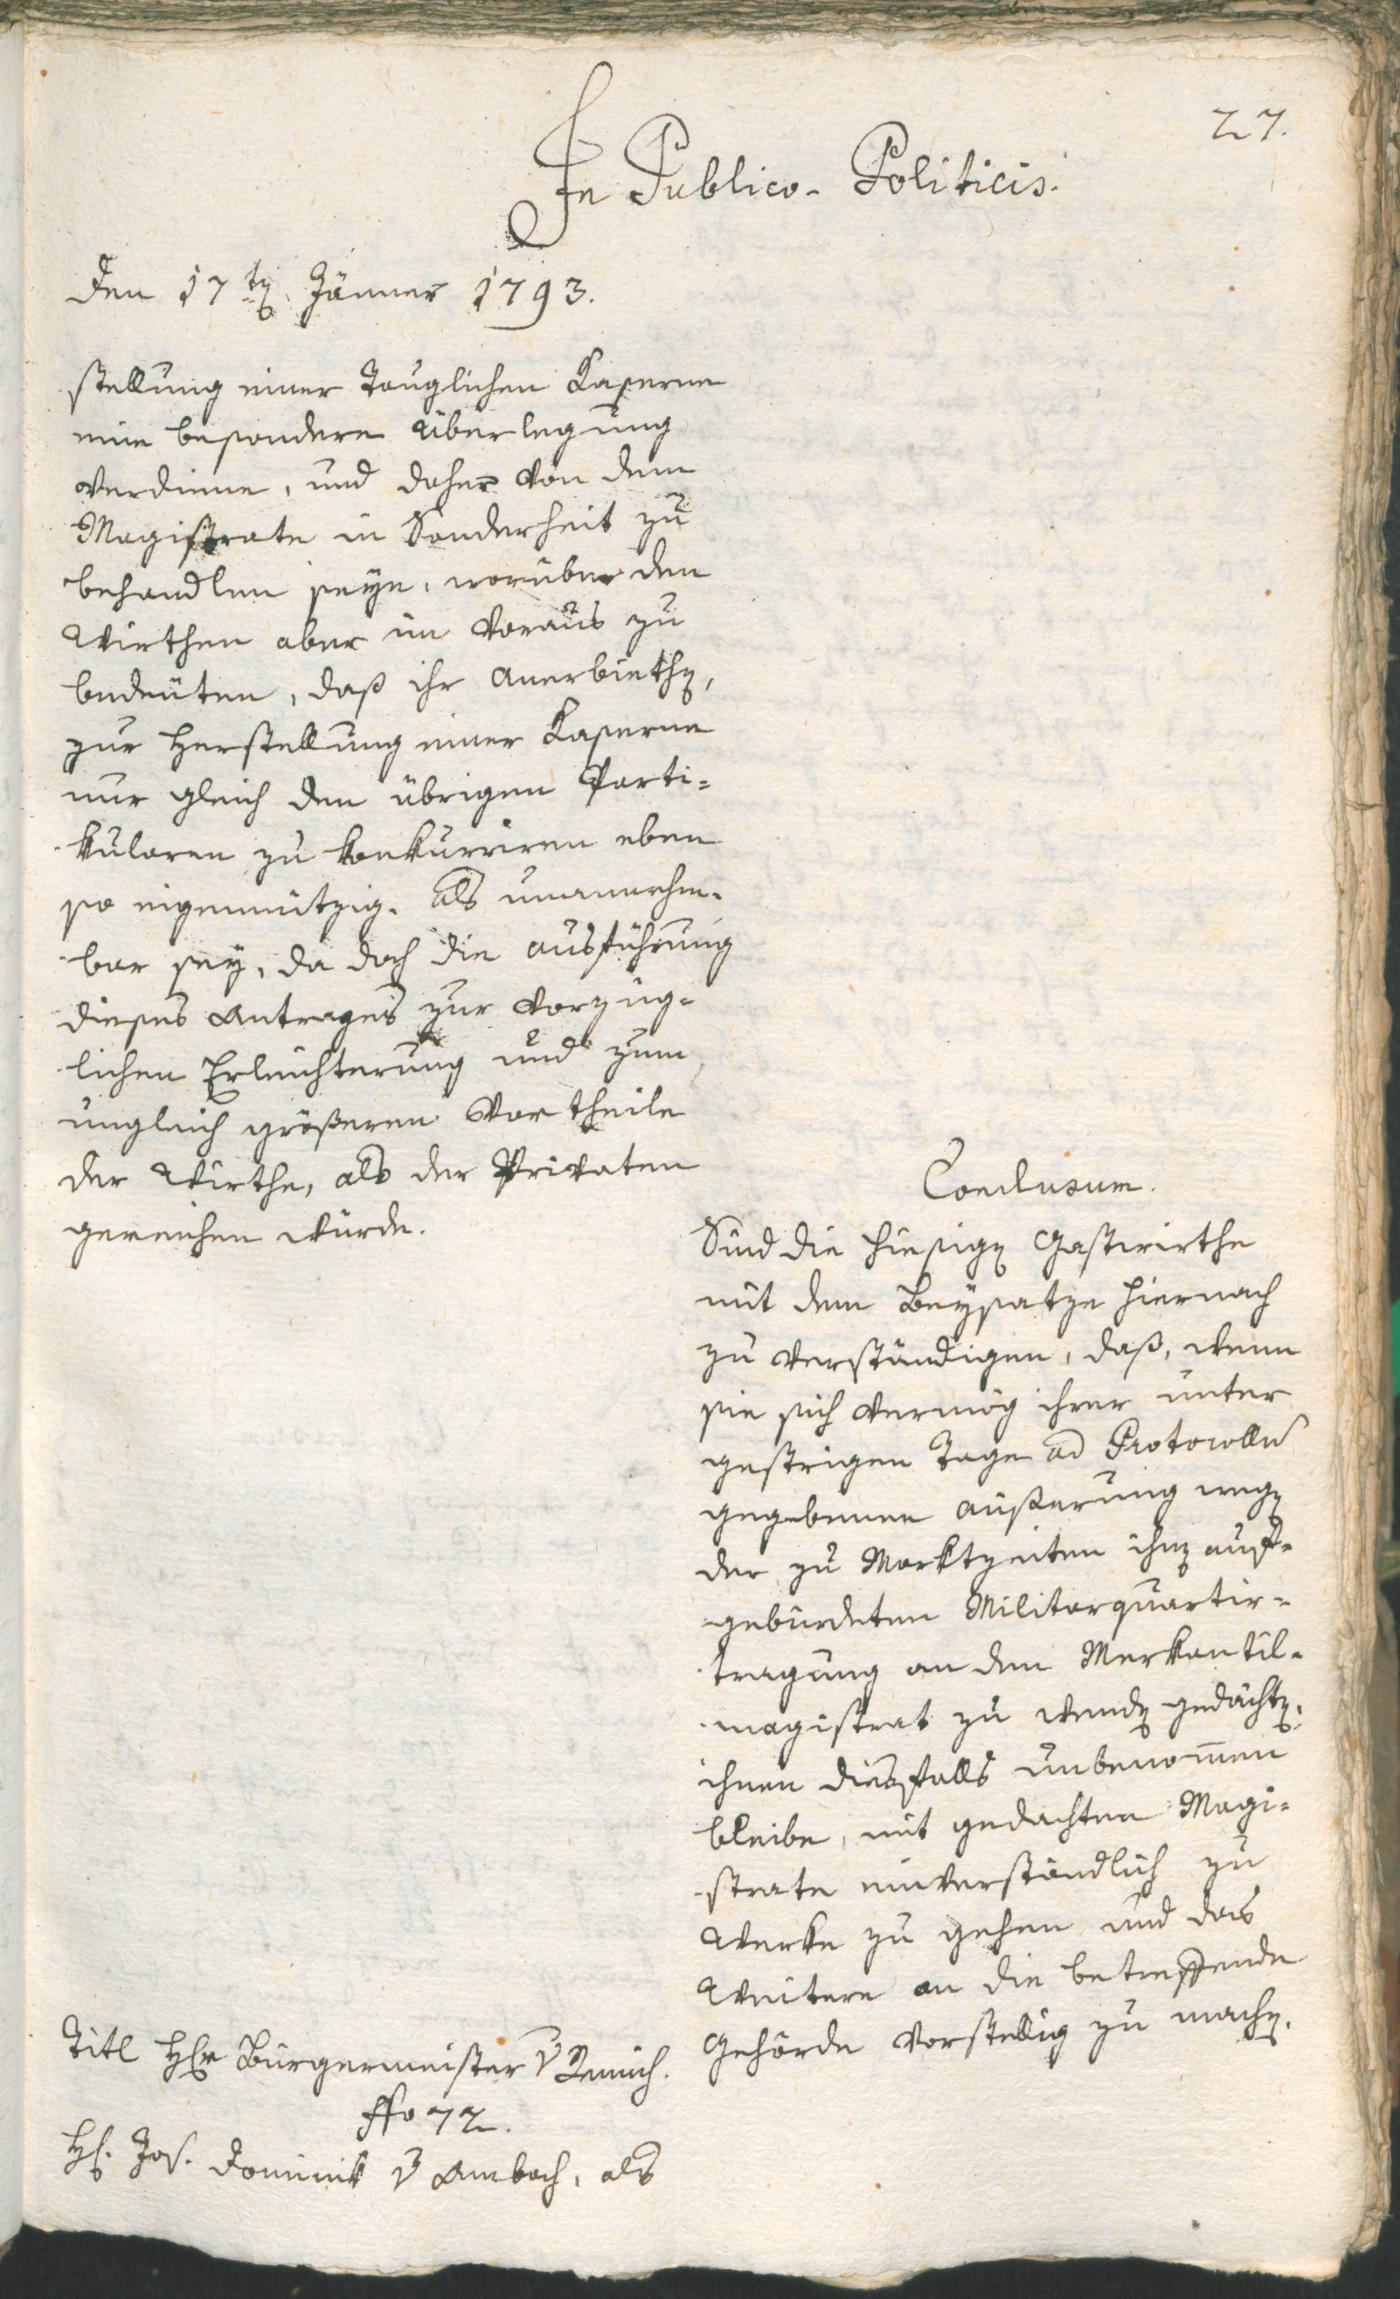 27.
In Publico-Politicis.
Den 17ten Jänner 1793.
stellung einer tauglichen Kaserne
eine besondere Überlegung
verdiene, und daher von dem
Magistrate in Sonderheit zu
behandlen seye, worüber den
Wirthen aber im Voraus zu
bedeuten, daß ihr Anerbiethen,
zur Herstellung einer Kaserne
nur gleich den übrigen Parti=
kularen zu konkurriren eben
so eigennützig, als unannehm=
bar sey, da doch die Ausführung
dieses Antrages zur vorzüg=
lichen Erleichterung und zum
ungleich größeren Vortheile
der Wirthe, als der Privaten
gereichen würde.
Conclusum.
Sind die hiesigen Gastwirthe
mit dem Beysatze hiernach
zu verständigen, daß, wenn
sie sich vermög ihrer unter
gestrigen Tage ad Protocollum
gegebenen Äußerung wegen
der zu Marktzeiten ihnen auf=
gebürdeten Militarquartir=
tragung an den Merkantil=
magistrat zu wenden gedächten,
ihnen diesfalls unbenommen
bleibe, mit gedachten Magi=
strate einverständlich zu
Werke zu gehen und das
Weitere an die betreffende
Gehörde vorstellig zu machen.
Titl Herr Bürgermeister v
ffo 72.
H. Jos. Dominik v Ambach, als